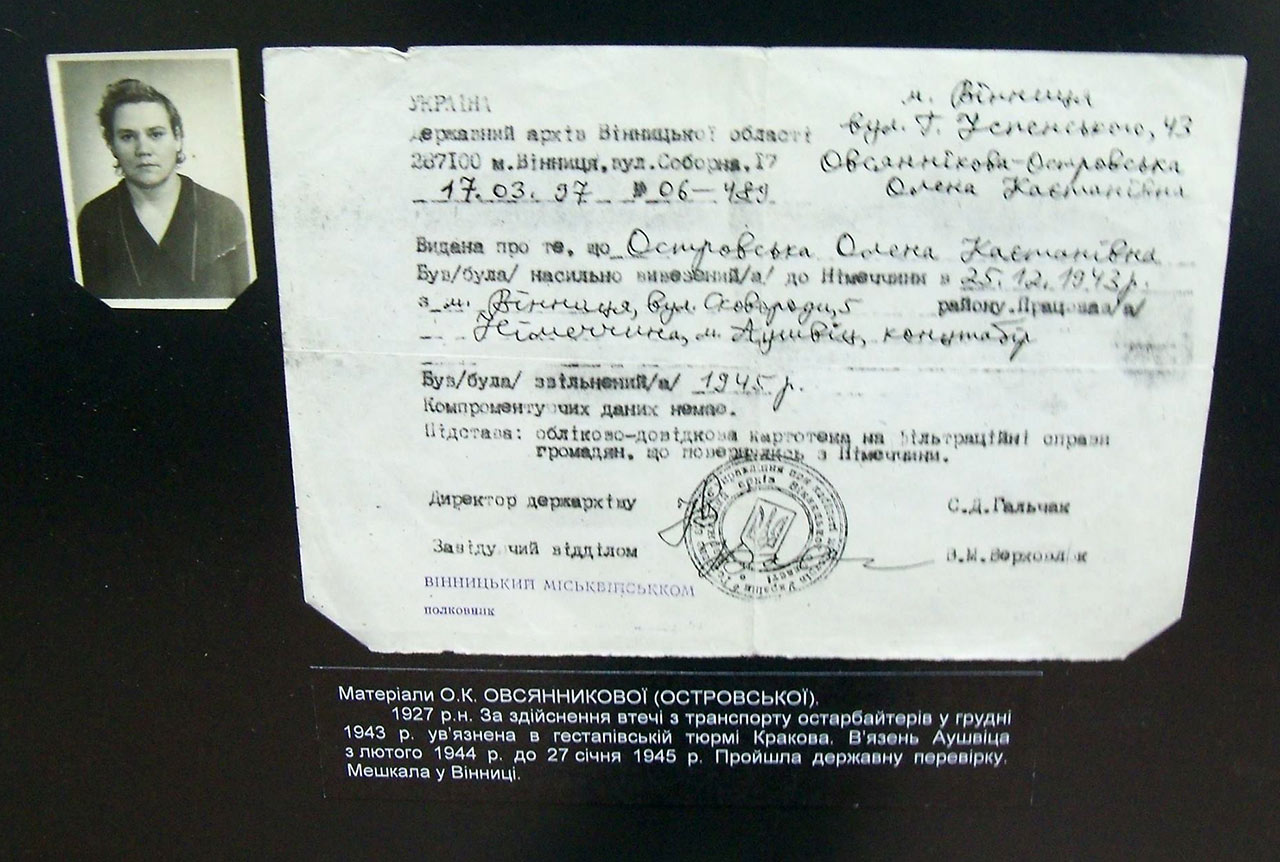 УКРАЇНА
Державний архів Вінницької області
287100 м.Вінниця,вул.Соборна,17
17.03.97 № 06-489
м. Вінниця
вул. Г. Успенського, 43
Овсяннікова-Островська
Олена Каєтанівна
Видана про те, що Островська Олена Каєтанівна
Був/була/ насильно вивезений/а/ до Німеччини в 25.12.1943р.
з м. Вінниця, вул. Сковороди,5 району.Працював/а/
Німеччина, м. Аушвіц, концтабір
Був/була/ звільнений/а/ 1945 р.
Компроментуючих даних немає.
Підстава: обліково-довідкова картотека на фільтраційні справи
громадян, що повернулись з Німеччини.
Директор держархіву С.Д.Гальчак
Завідуючий відділом
ВІННИЦЬКИЙ МІСЬКВІЙСЬККОМ
полковник
Матеріали О.К. ОВСЯННИКОВОЇ (ОСТРОВСЬКОЇ).
1927 р.н. За здійснення втечі з транспорту остарбайтерів у грудні
1943 р. ув'язнена в гестапівській тюрмі Кракова. В'язень Аушвіца
з лютого 1944 р. до 27 січня 1945 р. Пройшла державну перевірку.
Мешкала у Вінниці.